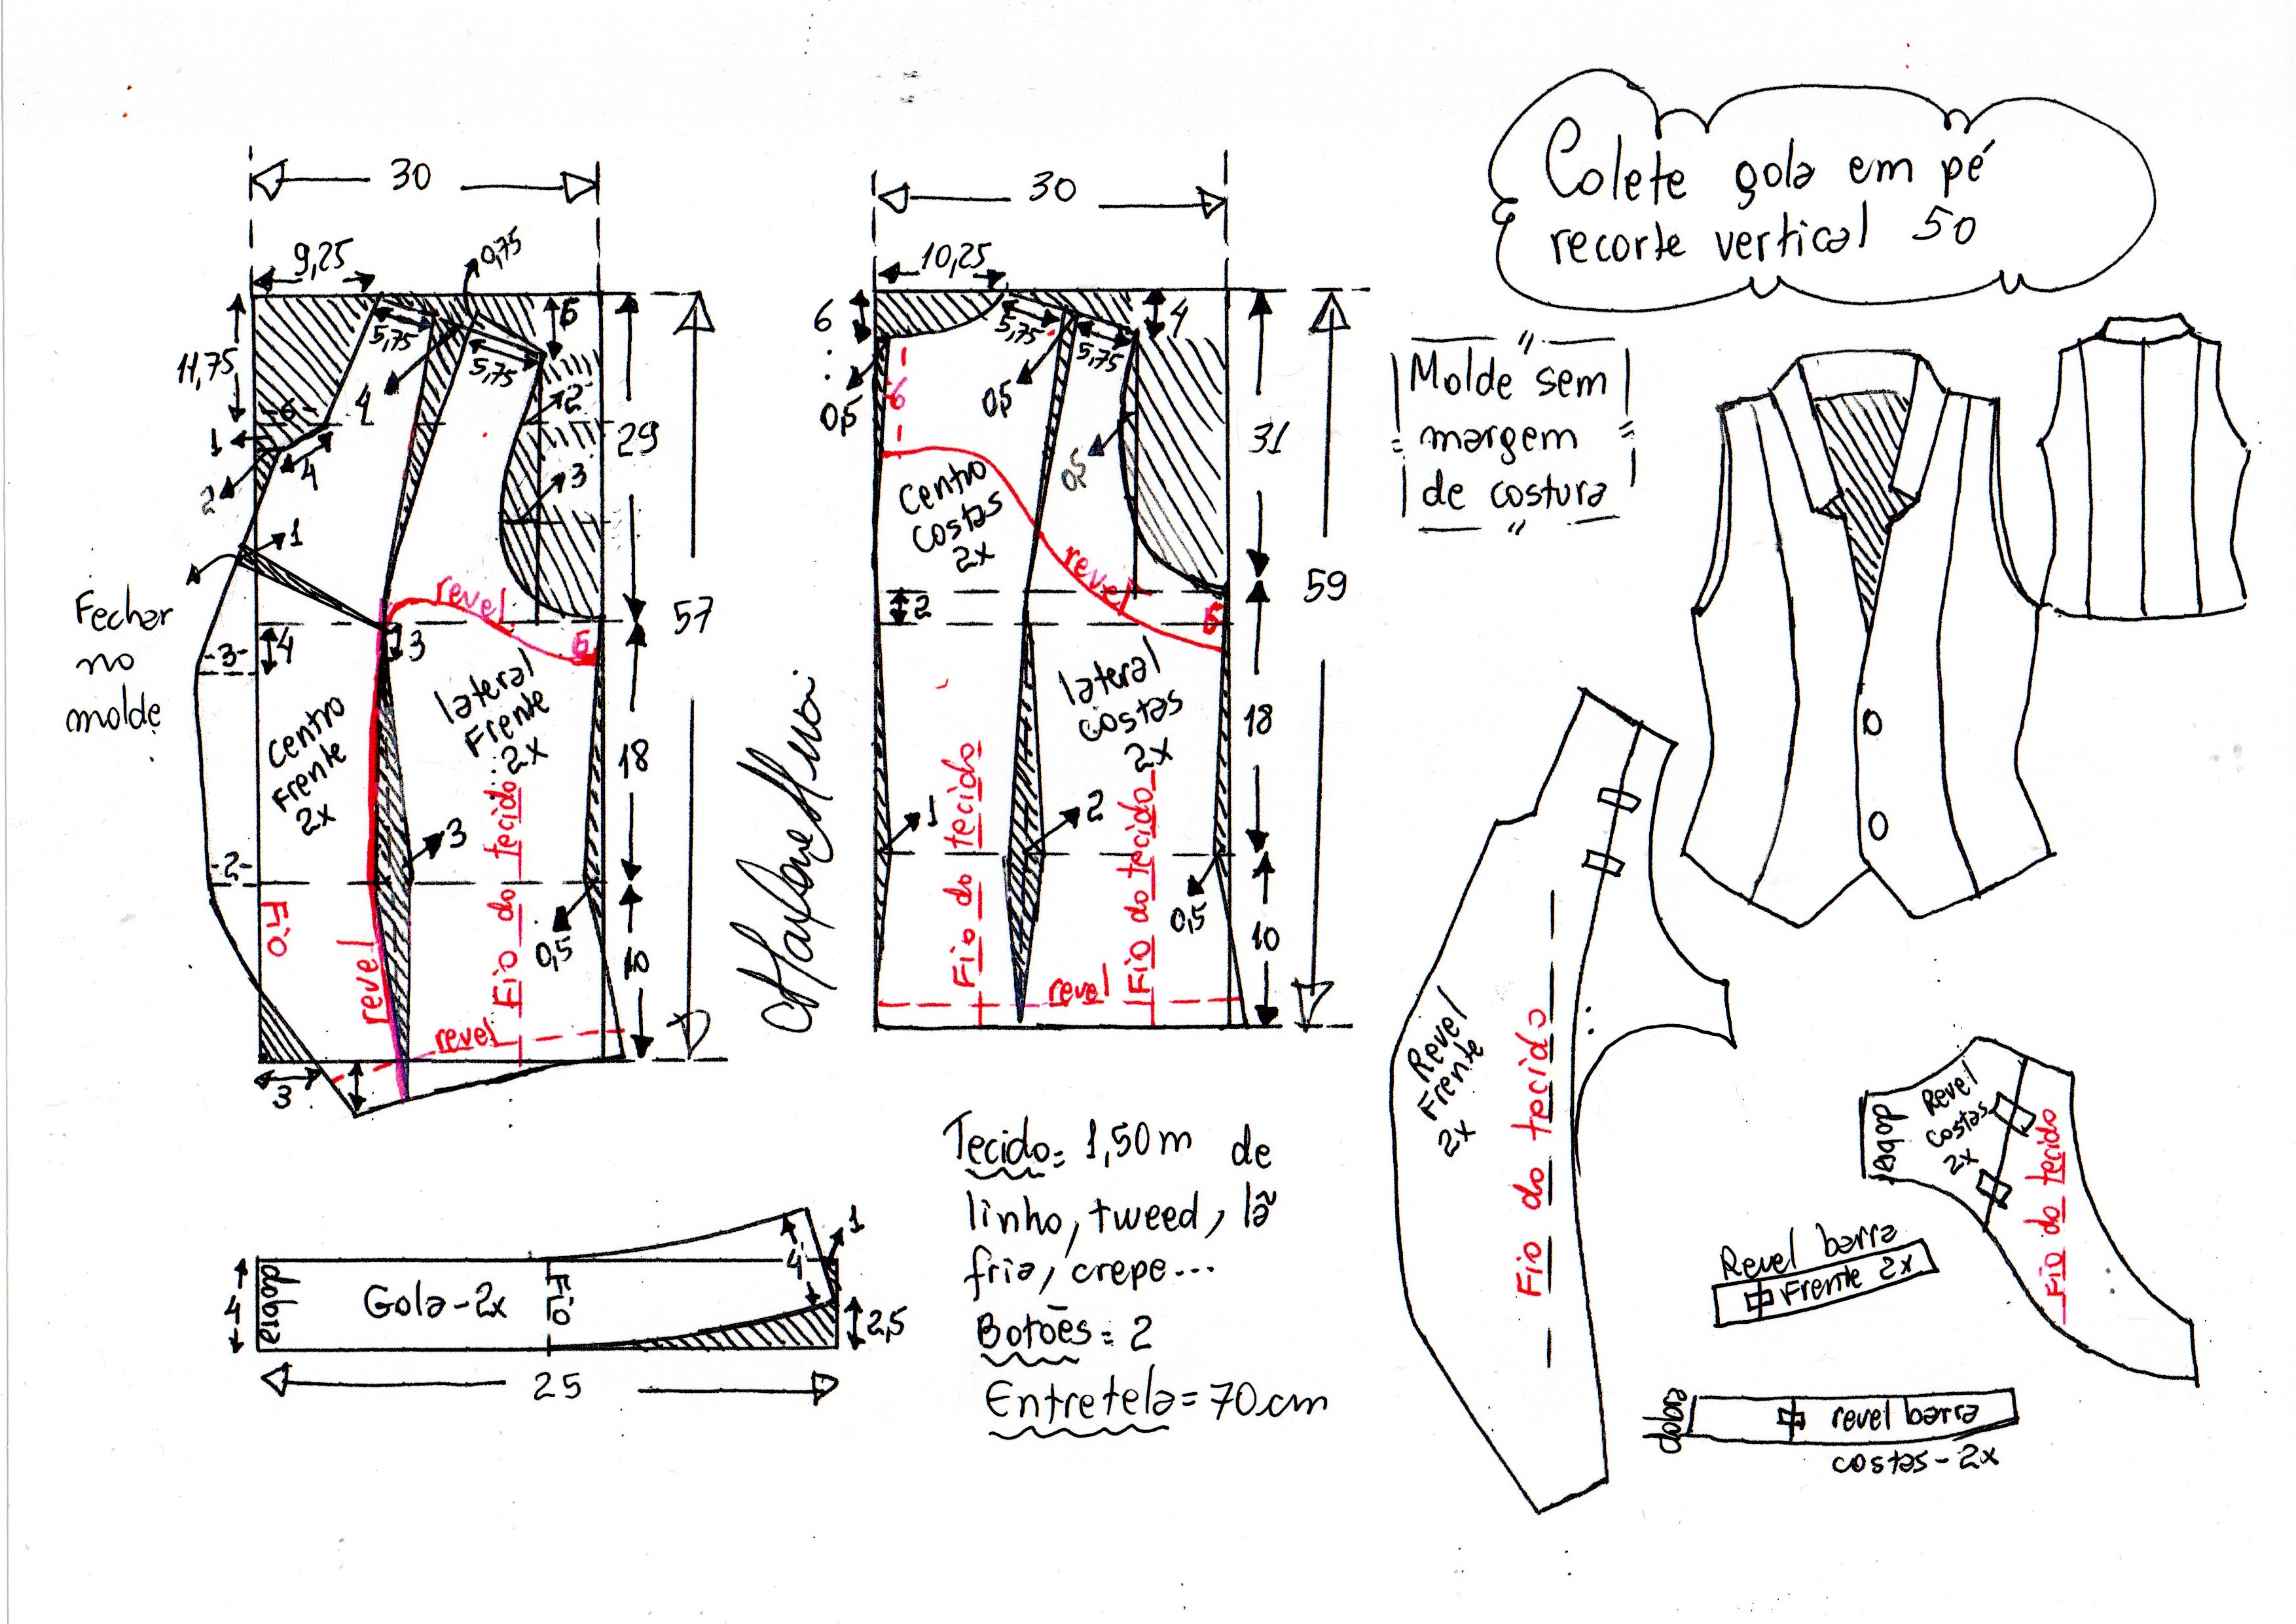 Colete gola em pé
recorte vertical 50
"
Molde sem
margem
de costura
"
30
9,25
0,75
11,75
5,75
5,75
6
4
2
-6-
4
1
4
2
3
29
1
Fechar
no
molde
57
revel
6
-3-
4
3
centro
Frente
2x
lateral
Frente
2x
18
3
-2-
Fio
revel
Fio do tecido
0,5
10
revel
3
30
10,25
6
0,5
6
5,75
5,75
4
0,5
0,5
31
centro
costas
2x
revel
6
2
59
lateral
costas
2x
18
1
2
Fio do tecido
Fio do tecido
0,5
10
revel
dobra
4
Gola-2x
Fio
4
1
2,5
25
Tecido= 1,50m de
linho, tweed, lã
fria, crepe...
Botões= 2
Entretela=70cm
Revel
Frente
2x
Fio do tecido
dobra
Revel
costas
2x
Fio do tecido
Revel barra
Frente 2x
dobra
revel barra
costas-2x